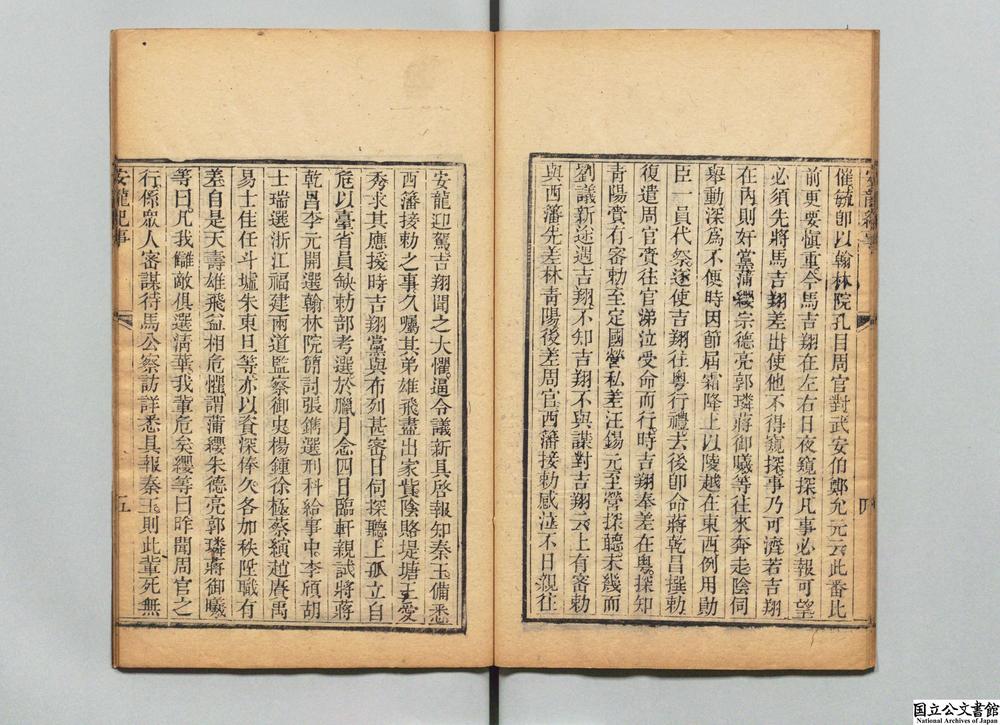 催毓卽以翰林院孔目周官對武安伯鄭允元云此番比
前更要愼重今馬吉翔在左右日夜窺探凡事必報可望
必須先將馬吉翔差出使他不得窺探事乃可濟若吉翔
在內則奸黨蒲纓宗德亮郭璘蔣御曦等往來奔走陰伺
舉動深爲不便時因節屆霜降上以陵越在東西例用勛
臣一員代祭遂使吉翔往粵行禮去後卽命蔣乾昌撰勅
復遣周官賫往官涕泣受命而行時吉翔奉差在粵探知
靑陽賫有密勅至定國營私差汪錫元至營探聽未幾而
劉議新途遇吉翔不知吉翔不與謀對吉翔云上有密勅
與西藩先差林靑陽後差周官西藩接勅感泣不日親往
安龍紀事
四
安龍迎駕吉翔聞之大懼逼令議新具啓報知秦王備悉
西藩接勅之事久囑其弟雄飛盡出家貲陰賂堤塘王愛
秀求其應援時吉翔黨與布列甚密日伺探聽上孤立自
危以臺省員缺勅部考選於臘月念四日臨軒親試將蔣
乾昌李元開選翰林院簡討張鐫選刑科給事中李頎胡
士瑞選浙江福建兩道監察御史楊鍾徐極蔡縯趙賡禹
易士佳任斗墟朱東旦等亦以資深俸久各加秩陞職有
差自是天壽雄飛益相危懼謂蒲纓朱德亮郭璘蔣御曦
等曰凡我讎敵俱選淸華我輩危矣纓等曰昨聞周官之
行係眾人密謀待馬公察訪詳悉具報秦王則此輩死無
安龍紀事
五
国立公文書館
National Archives of Japan